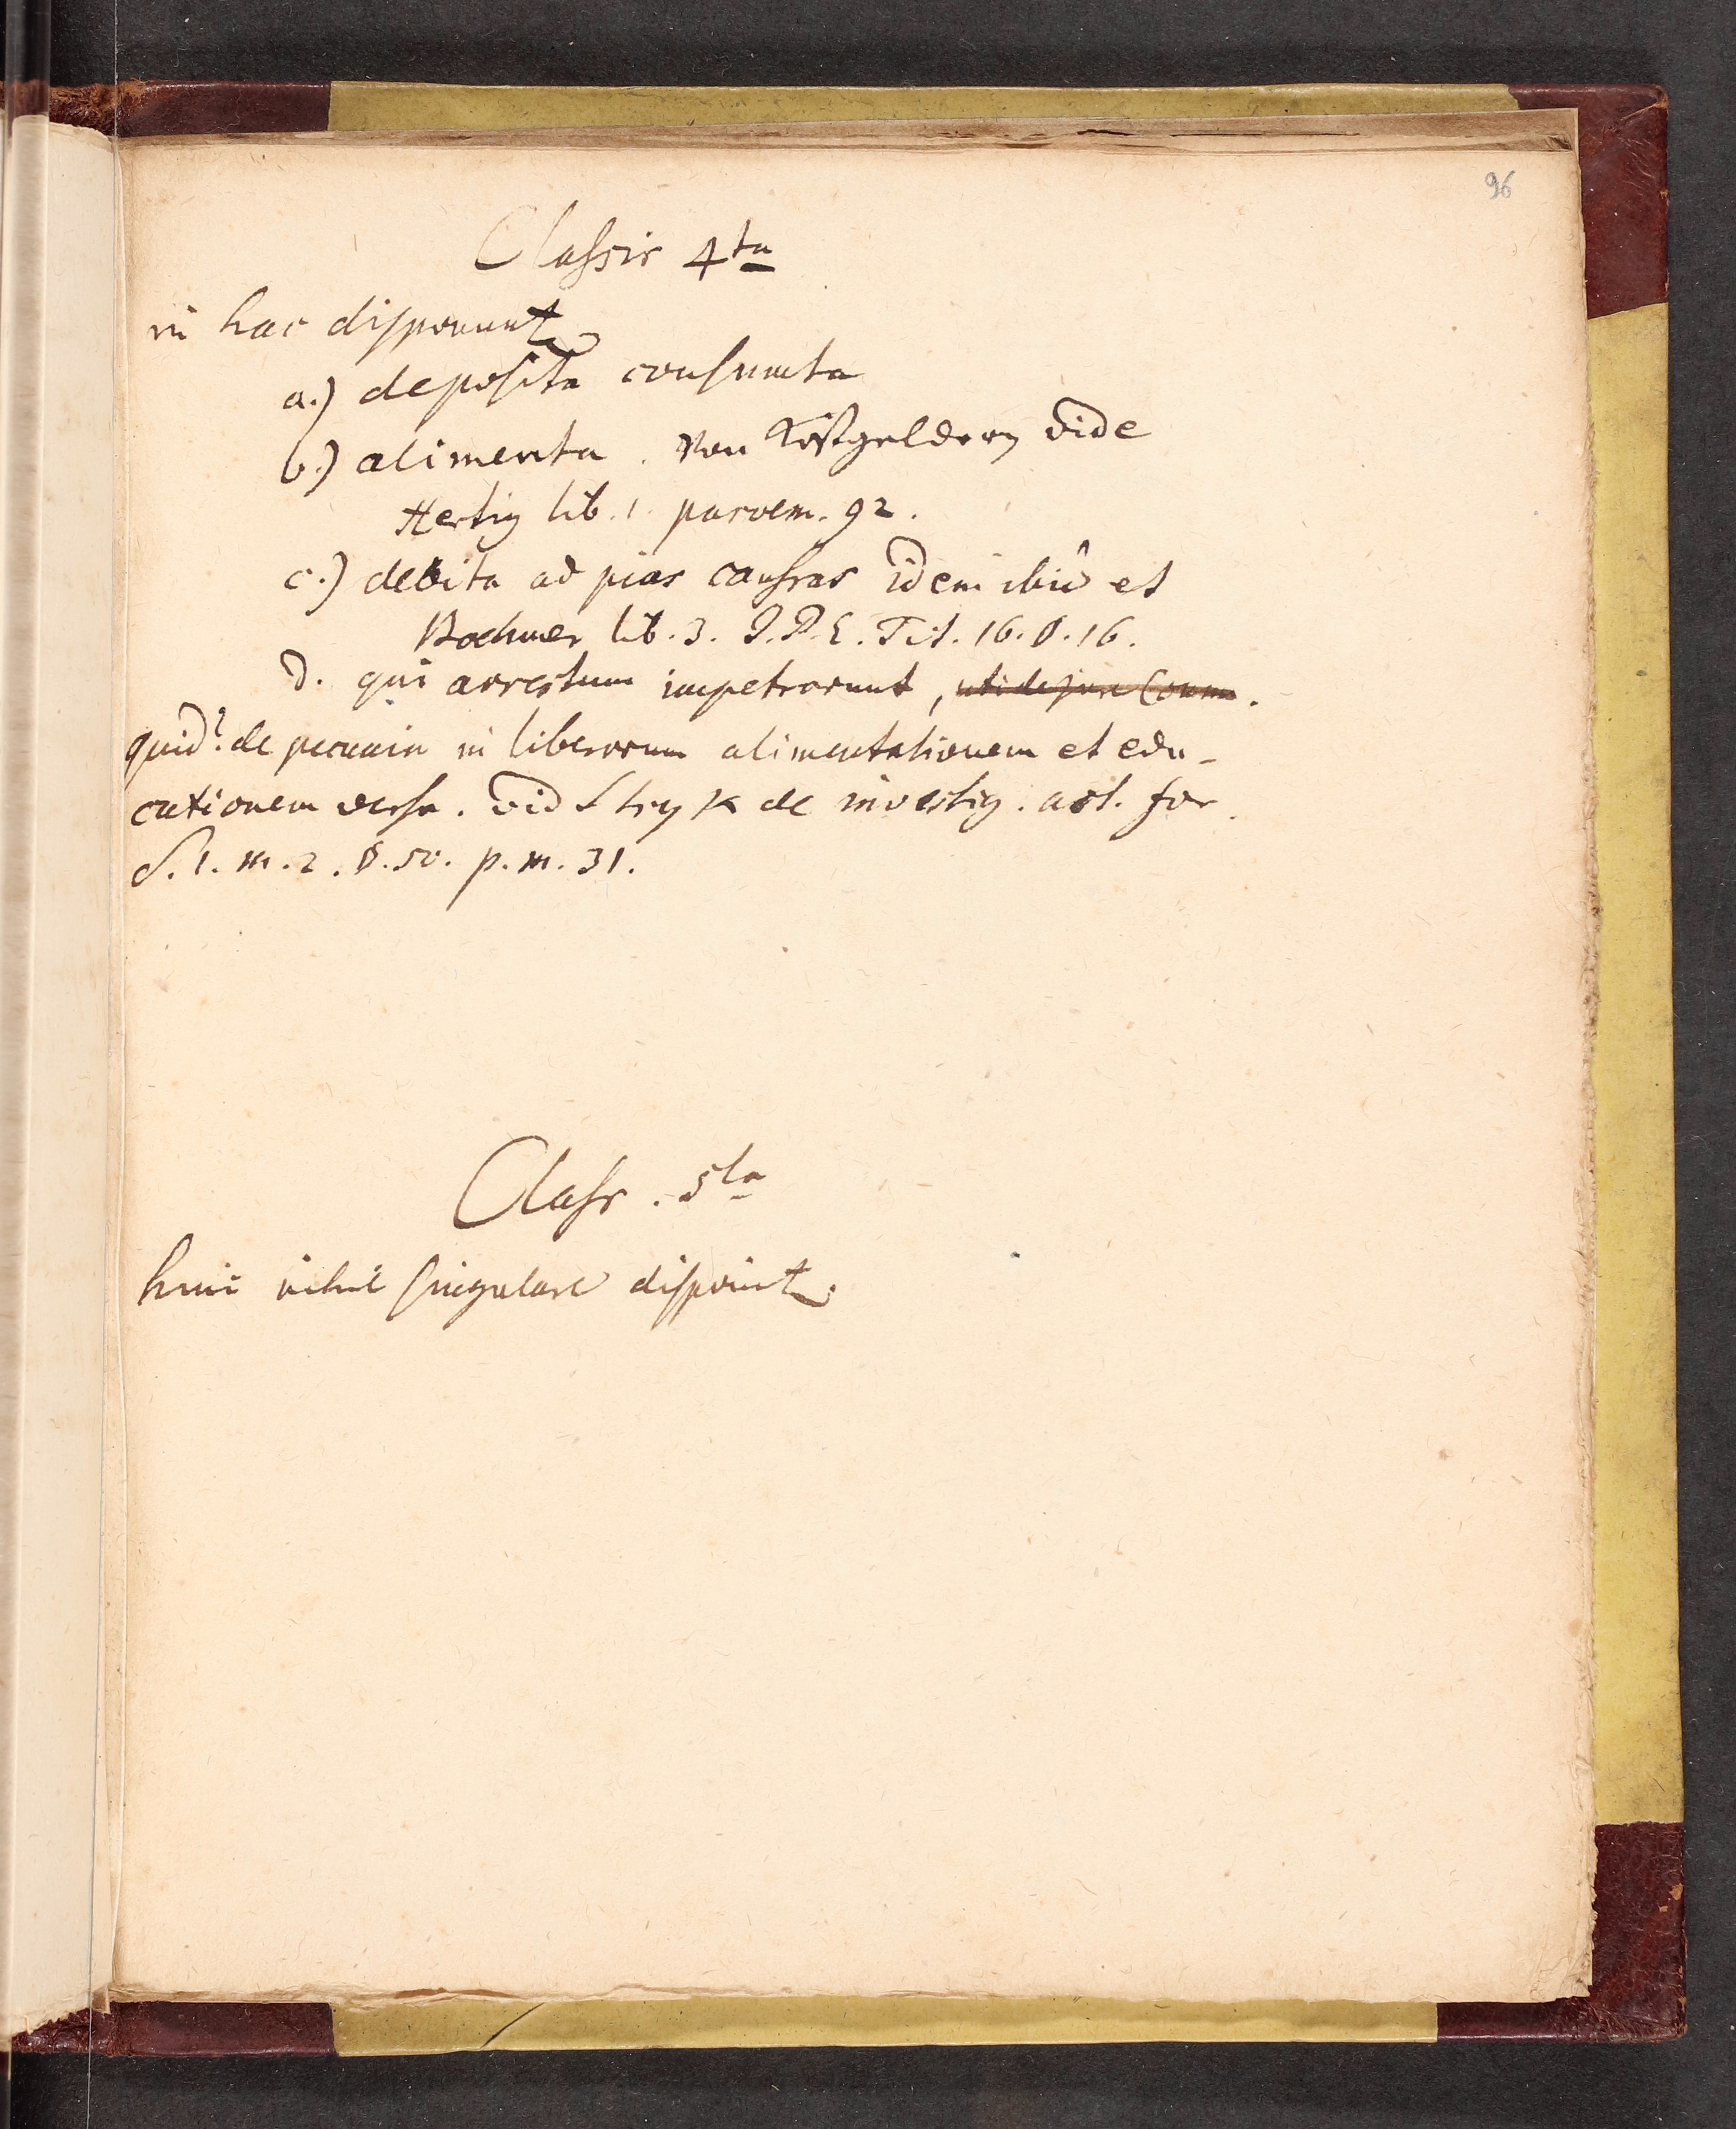 96
Classis 4ta
in hac disponunt
a.) deposita consumta
b.) alimenta. von Kostgeldern vide
Hertig lib. 1. paroem. 92.
c.) debita ad pias caussas idem ibid et
Boehmer lib. 3. J. P. E. Tit. 16. §. 16.
d. qui arrestum impetrarunt, uti de jure Comm.
quid? de pecunia in liberorum alimentationem et edu-
cationem versa. vid Stryk de investig. act. for.
S. 1. m. 2. §. 50. p. m. 31.
Class. 5ta
huic nihil singulare